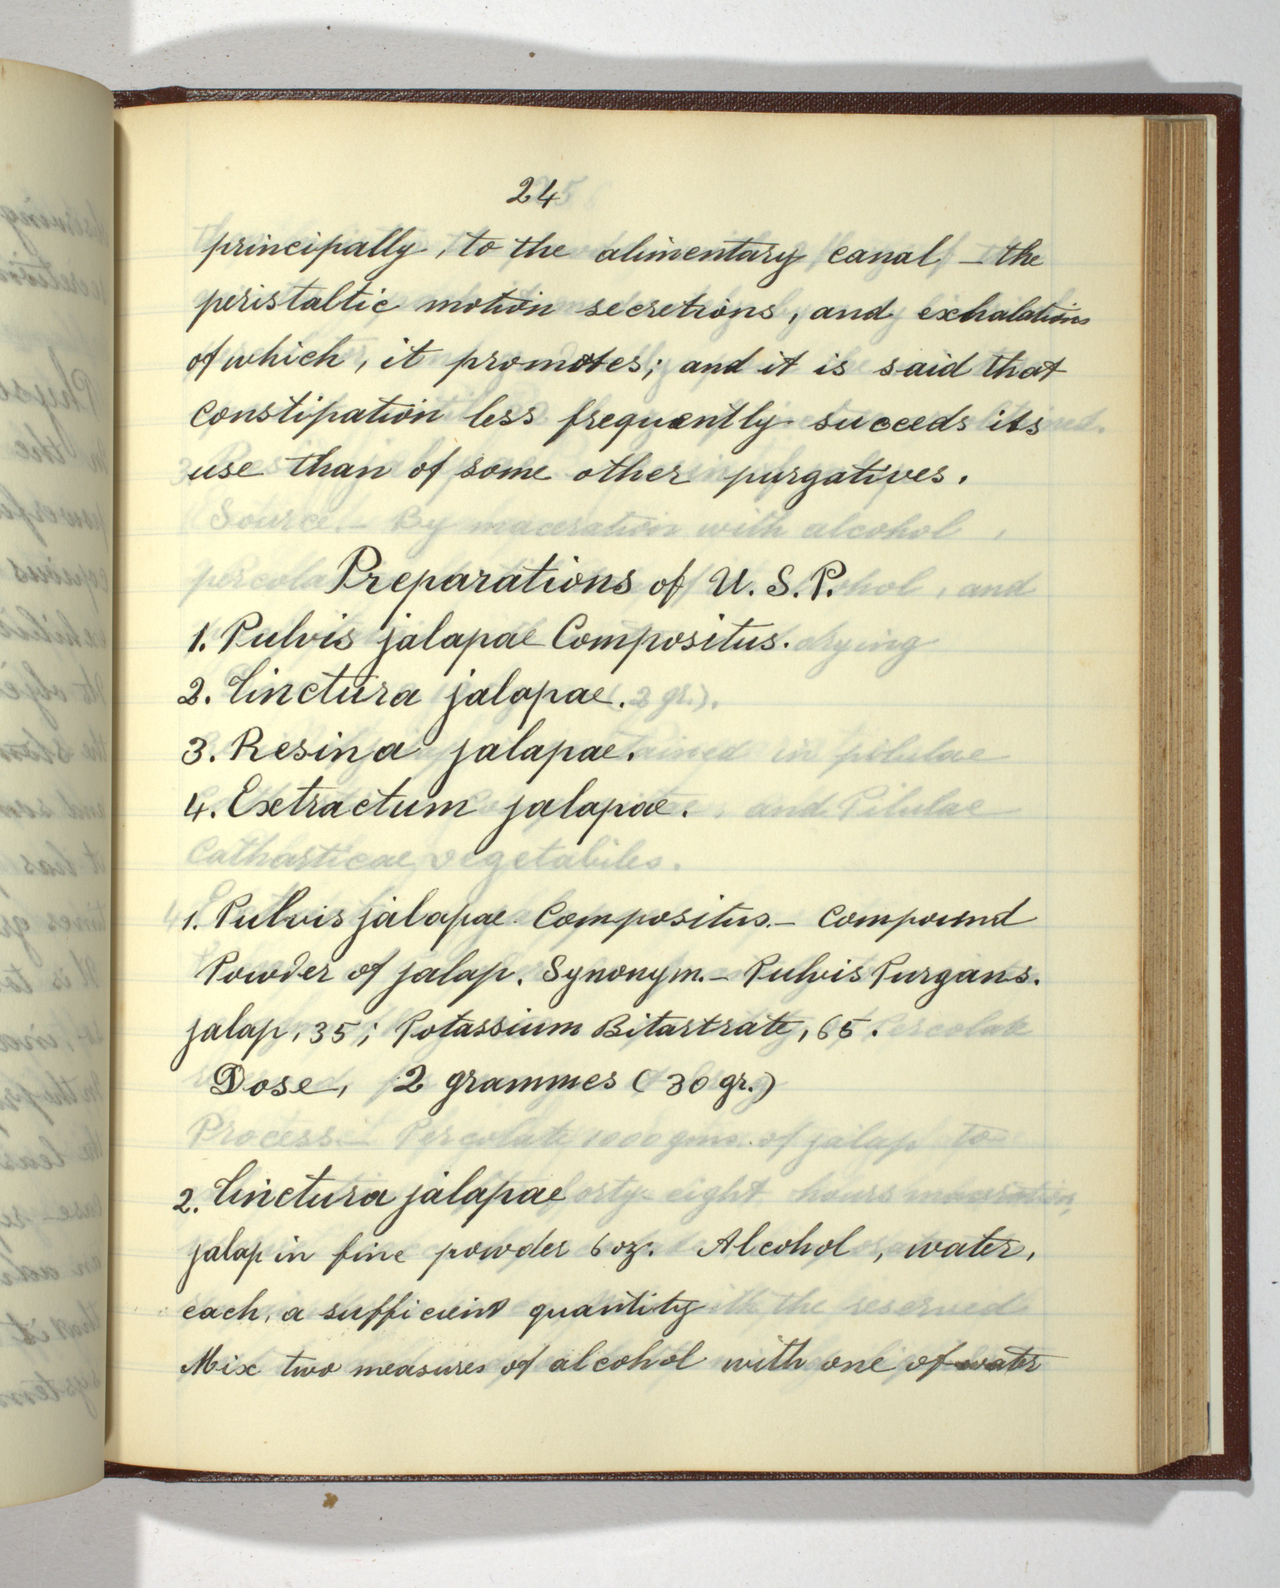 24
principally, to the alimentary canal – the
peristaltic motion secretions, and exhalations
of which, it promotes; and it is said that
constipation less frequently succeeds its
use than of some other purgatives.
Preparations of U. S. P.
1. Pulvis jalapae Compositus.
2. Tinctura jalapae.
3. Resina jalapae.
4. Extractum jalapae.
1. Pulvis jalapae Compositus. – Compound
Powder of jalap. Synonym. – Pulvis Purgans.
jalap, 35; Potassium Bitartrate, 65.
Dose, 2 grammes (30 gr.)
2. Tinctura jalapae
jalap in fine powder 6 oz. Alcohol, water,
each, a sufficient quantity
Mix two measures of alcohol with one of water